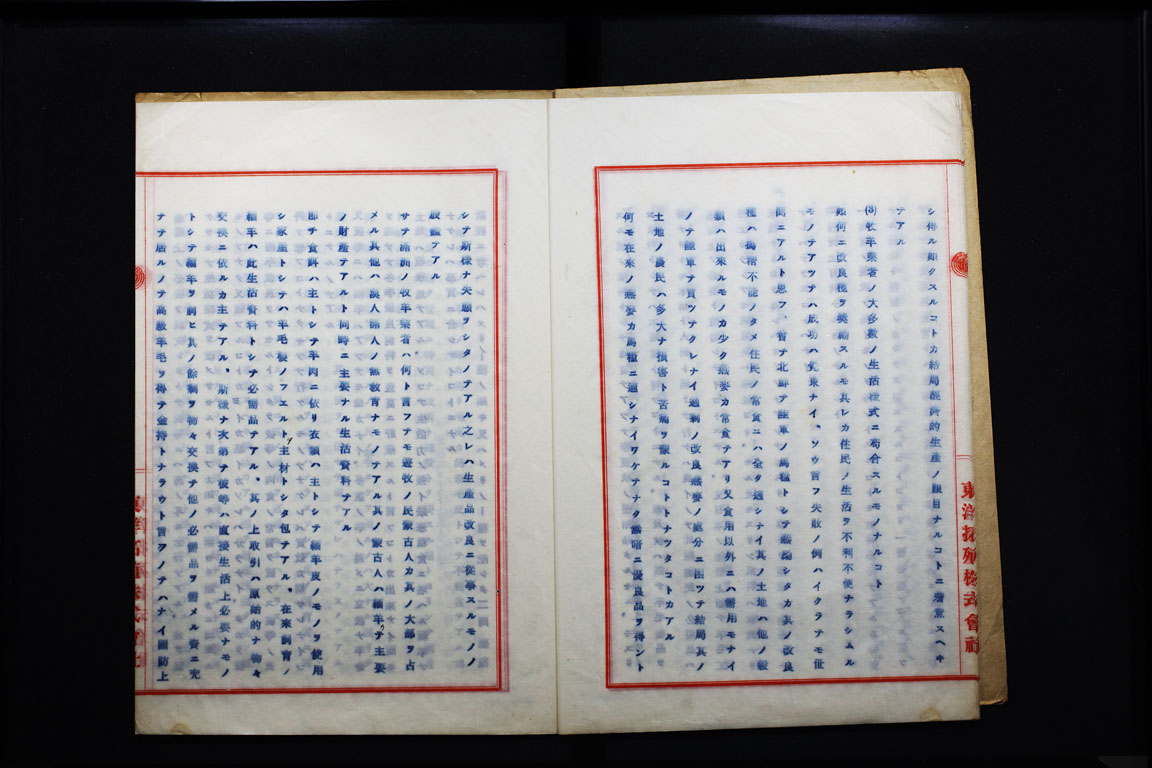 シ得ル如クスルコトカ結局経済的生産ノ眼目ナルコトニ着意スヘキ
テアル
(3)牧羊業者ノ大多数ノ生活様式ニ苟合スルモノナルコト
如何ニ改良種ヲ奨励スルモ其レカ住民ノ生活ヲ不利不便ナラシムル
モノテアツテハ成功ハ覚束ナイ、ソウ言フ失敗ノ例ハイクラテモ世
間ニアルト思フ、曾テ北鮮テ陸軍ノ馬糧トシテ燕麦シタカ其ノ改良
種ハ不能ノタメ住民ノ常食ニハ全タ適シナイ其ノ土地ハ他ノ穀
類ハ出来ルモノカ少ク燕麦カ常食テアリ又食用以外ニハ需用モナイ
ノテ陸軍テ買ツテクレナイ過剰ノ改良燕麦ノ処分ニ困ツテ結局其ノ
土地ノ農民ハ多大ナ損害ト苦痛ヲ蒙ルコトナツタコトカアル
何モ在来ノ燕麦カ馬糧ニ適シナイワケテナク無暗ニ優良品ヲ得ント
東洋拓殖株式會社
シテ斯様ナ失態ヲシタノテアル之レハ生産品改良ニ従事スルモノノ
殷鑑テアル
サテ満洲ノ牧羊業者ハ何ト言フテモ遊牧ノ民蒙古人カ其ノ大部ヲ占
メル其他ハ漢人婦人ノ無教育ナモノテアル其ノ蒙古人ハ緬羊カ主要
ノ財産テアルト同時ニ主要ナル生活資料テアル
即チ食料ハ主トシテ羊肉ニ依リ衣類ハ主トシテ緬羊皮ノモノヲ使用
シ家屋トシテハ羊毛製ノフエルトヲ主材トシタ包テアル、在来飼育ノ
緬羊ハ此生活資料トシテ必需品テアル、其ノ上取引ハ原始的ナ物々
交換ニ依ルカ主テアル、斯様ナ次第テ彼等ハ直接生活上必要ナモノ
トシテ緬羊ヲ飼ヒ其ノ余剰ヲ物々交換テ他ノ必需品ヲ需メル資ニ充
テテ居ルノテ高級羊毛ヲ得テ金持トナラウト言フノテハナイ国防上